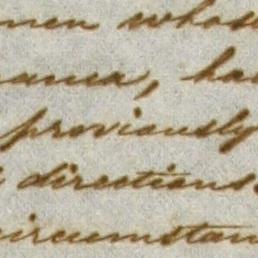 men whose
proviously
directions
circumstan